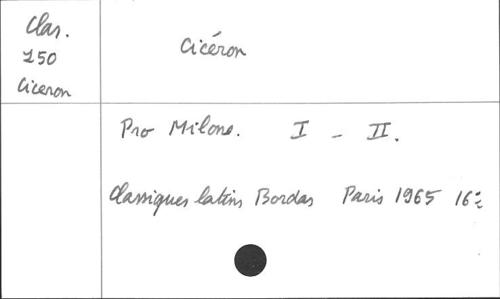 Clas.
150
Ciceron
Cicéron
Pro Milone. I - II.
Classiques latins Bordas Paris 1965 16º